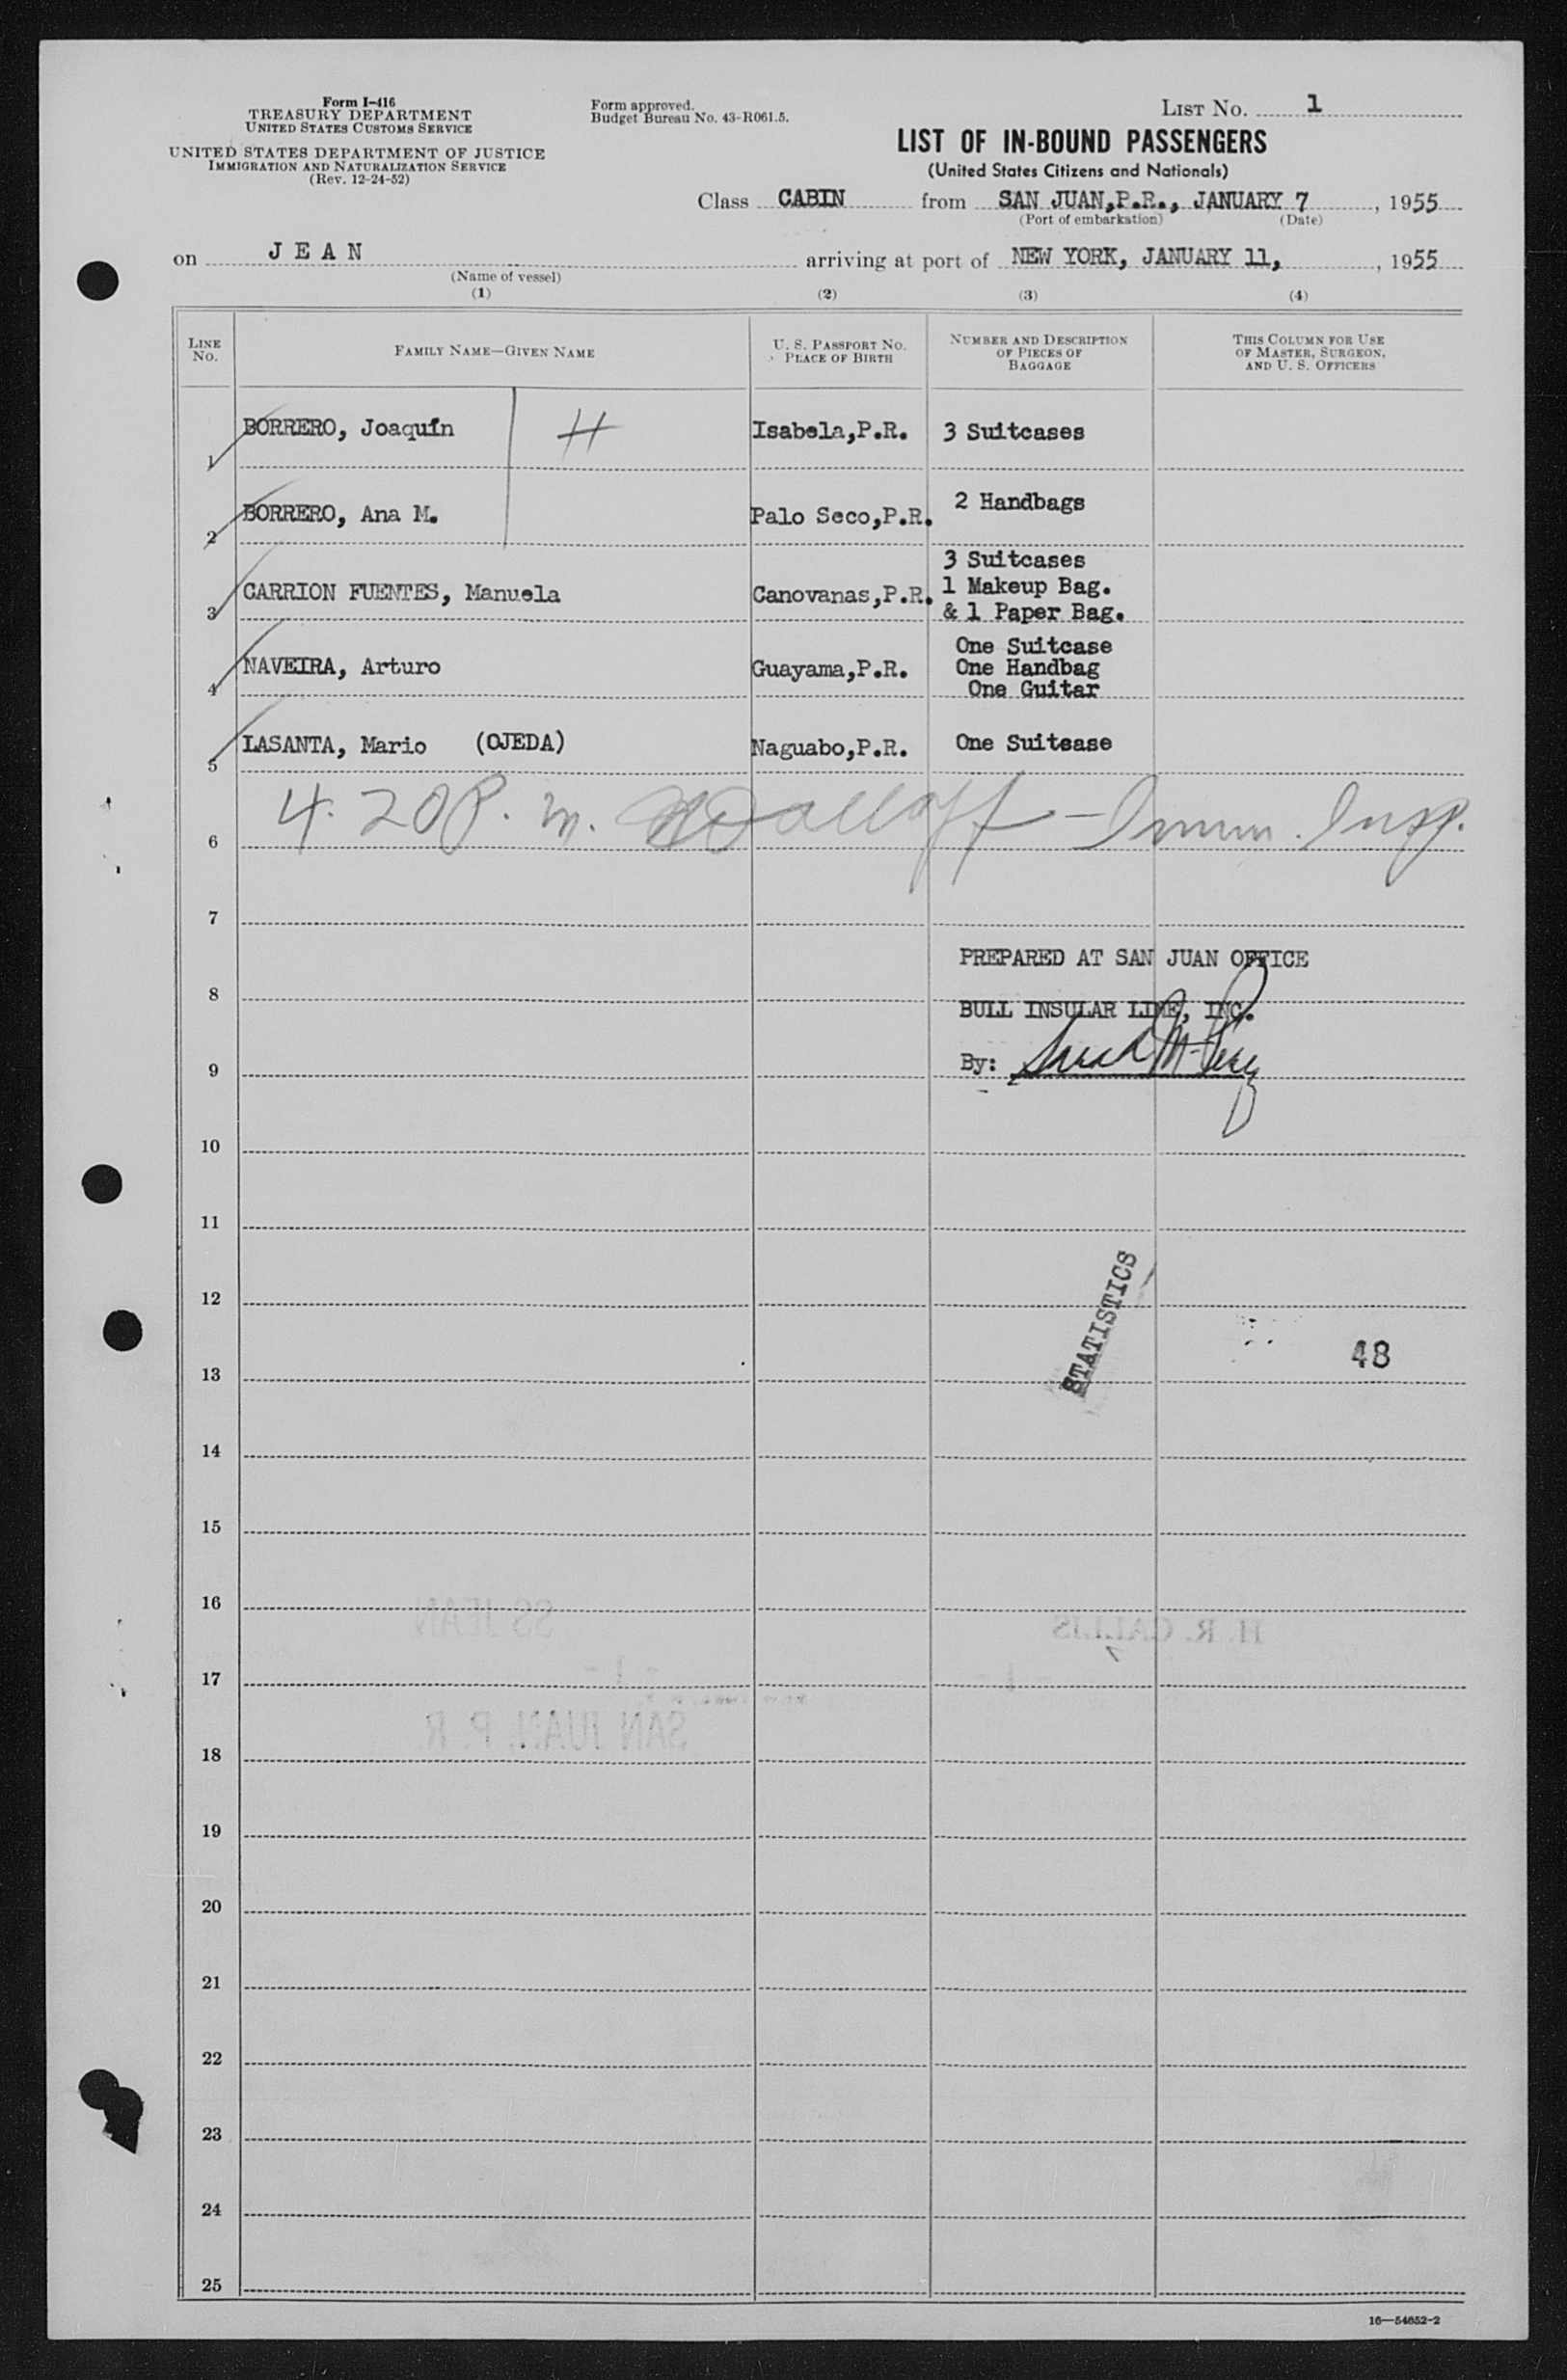 Form I-416
TREASURY DEPARTMENT
UNITED STATES CUSTOMS SERVICE
UNITED STATES DEPARTMENT OF JUSTICE
IMMIGRATION AND NATURALIZATION SERVICE
(Rev. 12-24-52)
Form approved.
Budget Bureau No. 43-R061.5.
LIST No. 1
LIST OF IN-BOUND PASSENGERS
(United States Citizens and Nationals)
Class CABIN from SAN JUAN,P.R., JANUARY 7, 1955
(Port of embarkation) (Date)
on JEAN arriving at port of NEW YORK, JANUARY 11, , 1955
(Name of vessel)
(1) (2) (3) (4)
LINE No. FAMILY NAME—GIVEN NAME U. S. PASSPORT NO. PLACE OF BIRTH NUMBER AND DESCRIPTION OF PIECES OF BAGGAGE THIS COLUMN FOR USE OF MASTER, SURGEON, AND U. S. OFFICERS
1 BORRERO, Joaquín H Isabela,P.R. 3 Suitcases
2 BORRERO, Ana M. Palo Seco,P.R. 2 Handbags
3 CARRION FUENTES, Manuela Canovanas,P.R. 3 Suitcases
1 Makeup Bag.
& 1 Paper Bag.
4 NAVEIRA, Arturo Guayama,P.R. One Suitcase
One Handbag
One Guitar
5 LASANTA, Mario (OJEDA) Naguabo,P.R. One Suitcase
6 4.20 P.m. - Immn. Insp.
7
PREPARED AT SAN JUAN OFFICE
8
BULL INSULAR LINE, INC.
9 By:
10
11
12
STATISTICS
48
13
14
15
16
SS JEAN
H. R. CALLIS
17
SAN JUAN, P. R.
18
19
20
21
22
23
24
25
16—54652-2